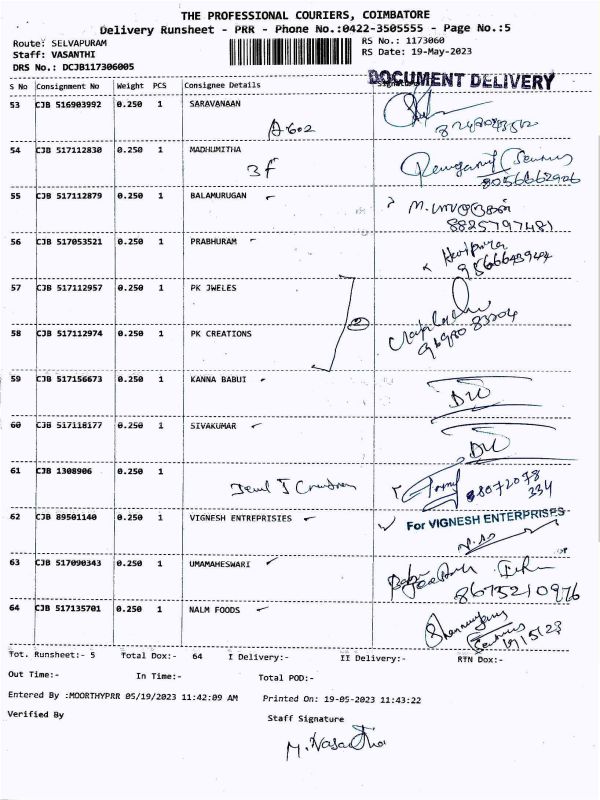 THE PROFESSIONAL COURIERS, COIMBATORE
Delivery Runsheet - PRR - Phone No.:0422-3505555 - Page No.:5
Route: SELVAPURAM RS No.: 1173060
Staff: VASANTHI RS Date: 19-May-2023
DRS No.: DCJB117306005
DOCUMENT DELIVERY
S No Consignment No Weight PCS Consignee Details
53 CJB 516903992 0.250 1 SARAVANAAN
A602
54 CJB 517112830 0.250 1 MADHUMITHA
3F
8056662906
55 CJB 517112879 0.250 1 BALAMURUGAN
8825797481
56 CJB 517053521 0.250 1 PRABHURAM
57 CJB 517112957 0.250 1 PK JWELES
2
58 CJB 517112974 0.250 1 PK CREATIONS
59 CJB 517156673 0.250 1 KANNA BABUI
60 CJB 517118177 0.250 1 SIVAKUMAR
61 CJB 1308906 0.250 1
88072078
334
62 CJB 89501140 0.250 1 VIGNESH ENTREPRISIES
For VIGNESH ENTERPRISES
63 CJB 517090343 0.250 1 UMAMAHESWARI
8675210976
64 CJB 517135701 0.250 1 NALM FOODS
19/5/23
Tot. Runsheet:- 5 Total Dox:- 64 I Delivery:- II Delivery:- RTN Dox:-
Out Time:- In Time:- Total POD:-
Entered By :MOORTHYPRR 05/19/2023 11:42:09 AM Printed On: 19-05-2023 11:43:22
Verified By Staff Signature
M. Vasantha